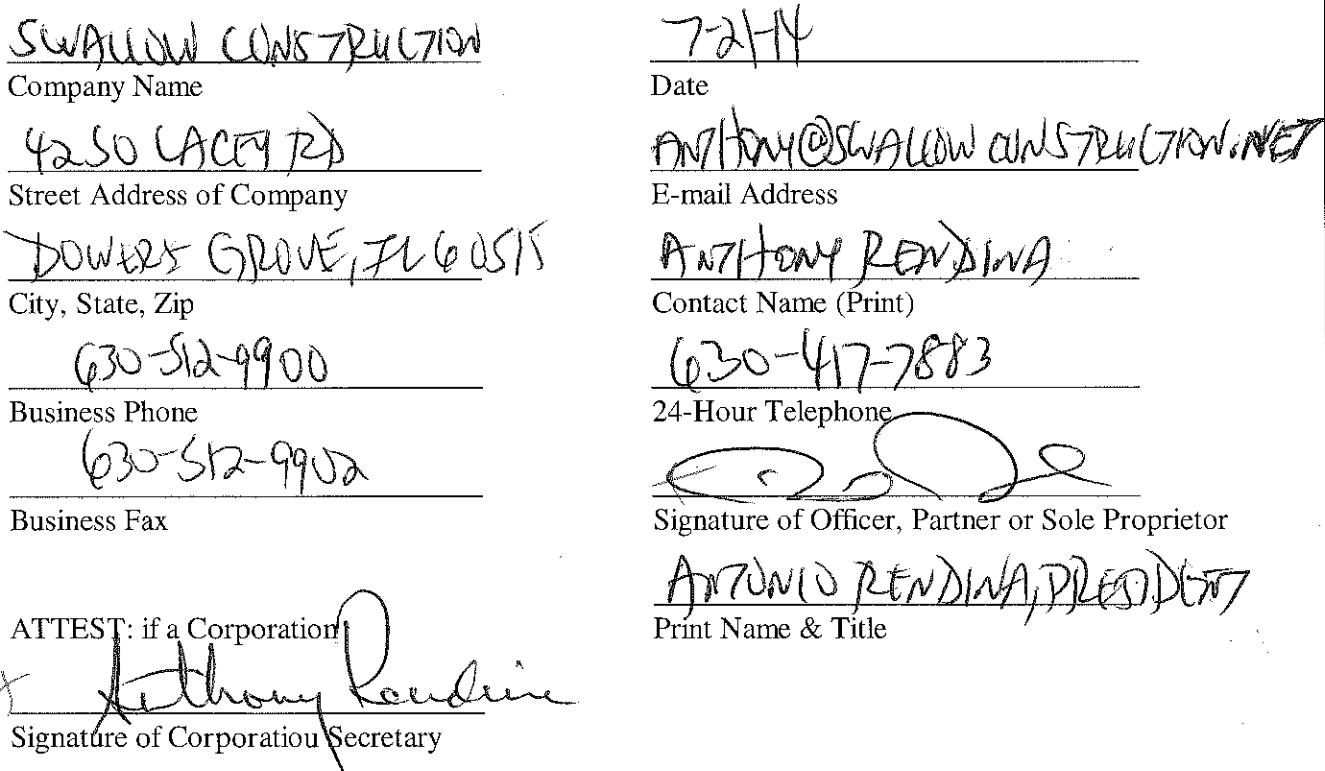 SWALLOW CONSTRUCTION
Company Name
4250 LACEY RD
Street Address of Company
DOWERS GROVE, IL 60515
City, State, Zip
630-512-9900
Business Phone
630-512-9902
Business Fax
ATTEST: if a Corporation
Anthony Rendina
Signature of Corporatiou Secretary
7-21-14
Date
ANTHONY@SWALLOWCONSTRUCTION.NET
E-mail Address
ANTHONY RENDINA
Contact Name (Print)
630-417-7883
24-Hour Telephone
Signature of Officer, Partner or Sole Proprietor
ANTONIO RENDINA, PRESIDENT
Print Name & Title